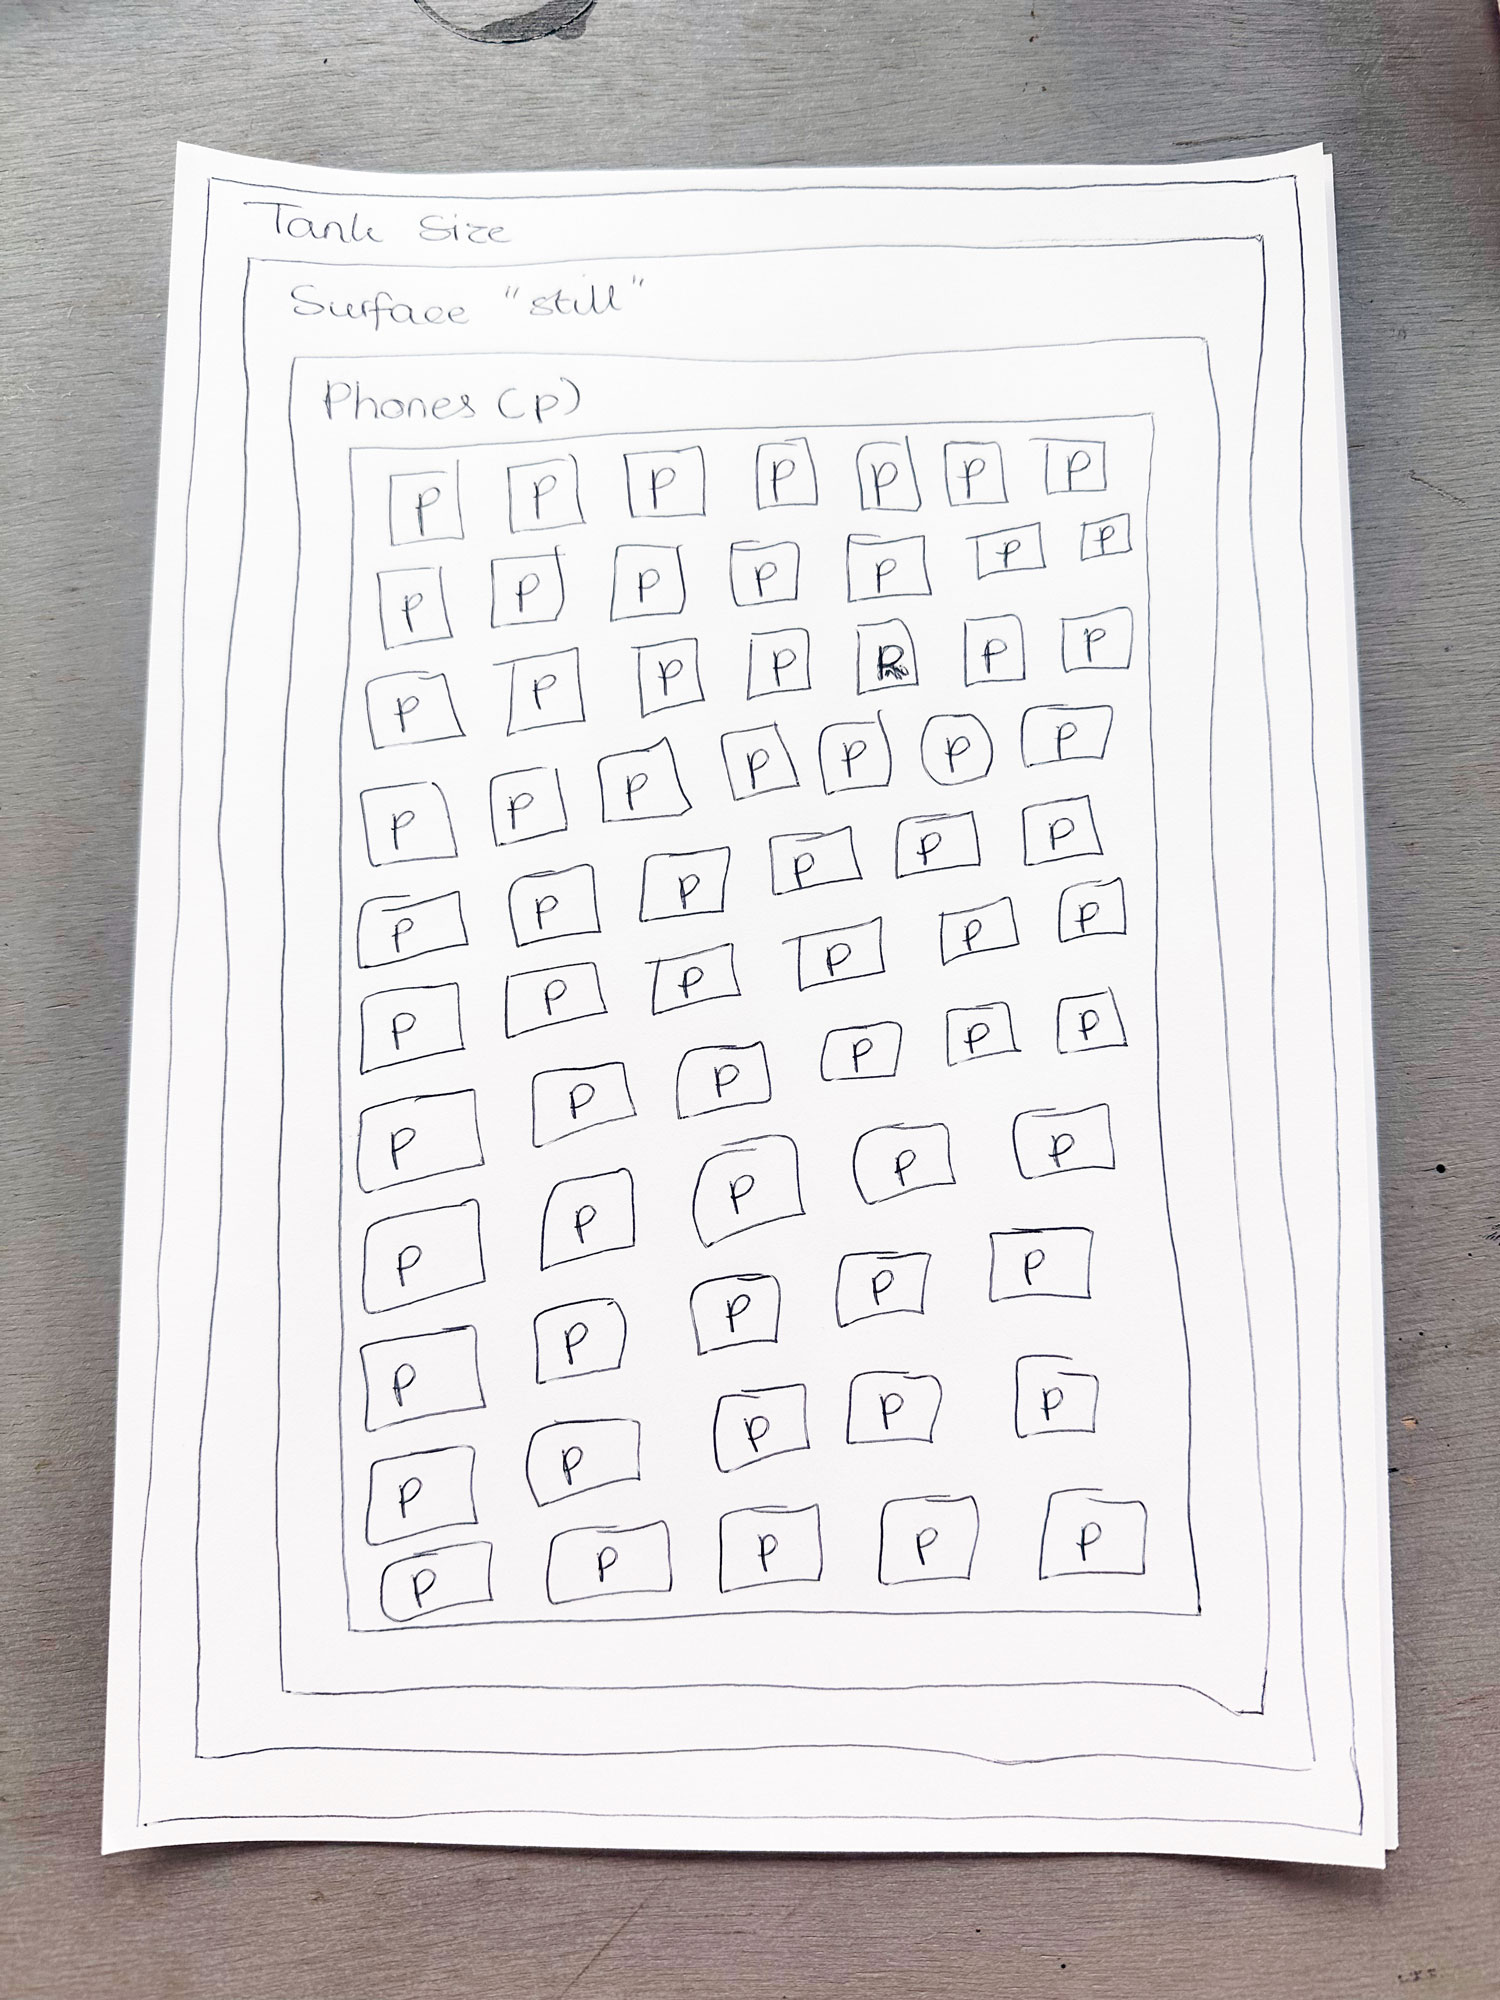 Tank Size
Surface "still"
Phones (p)
P P P P P P P
P P P P P P P
P P P P R P P
P P P P P P P
P P P P P P
P P P P P P
P P P P P P
P P P P P
P P P P P
P P P P P
P P P P P